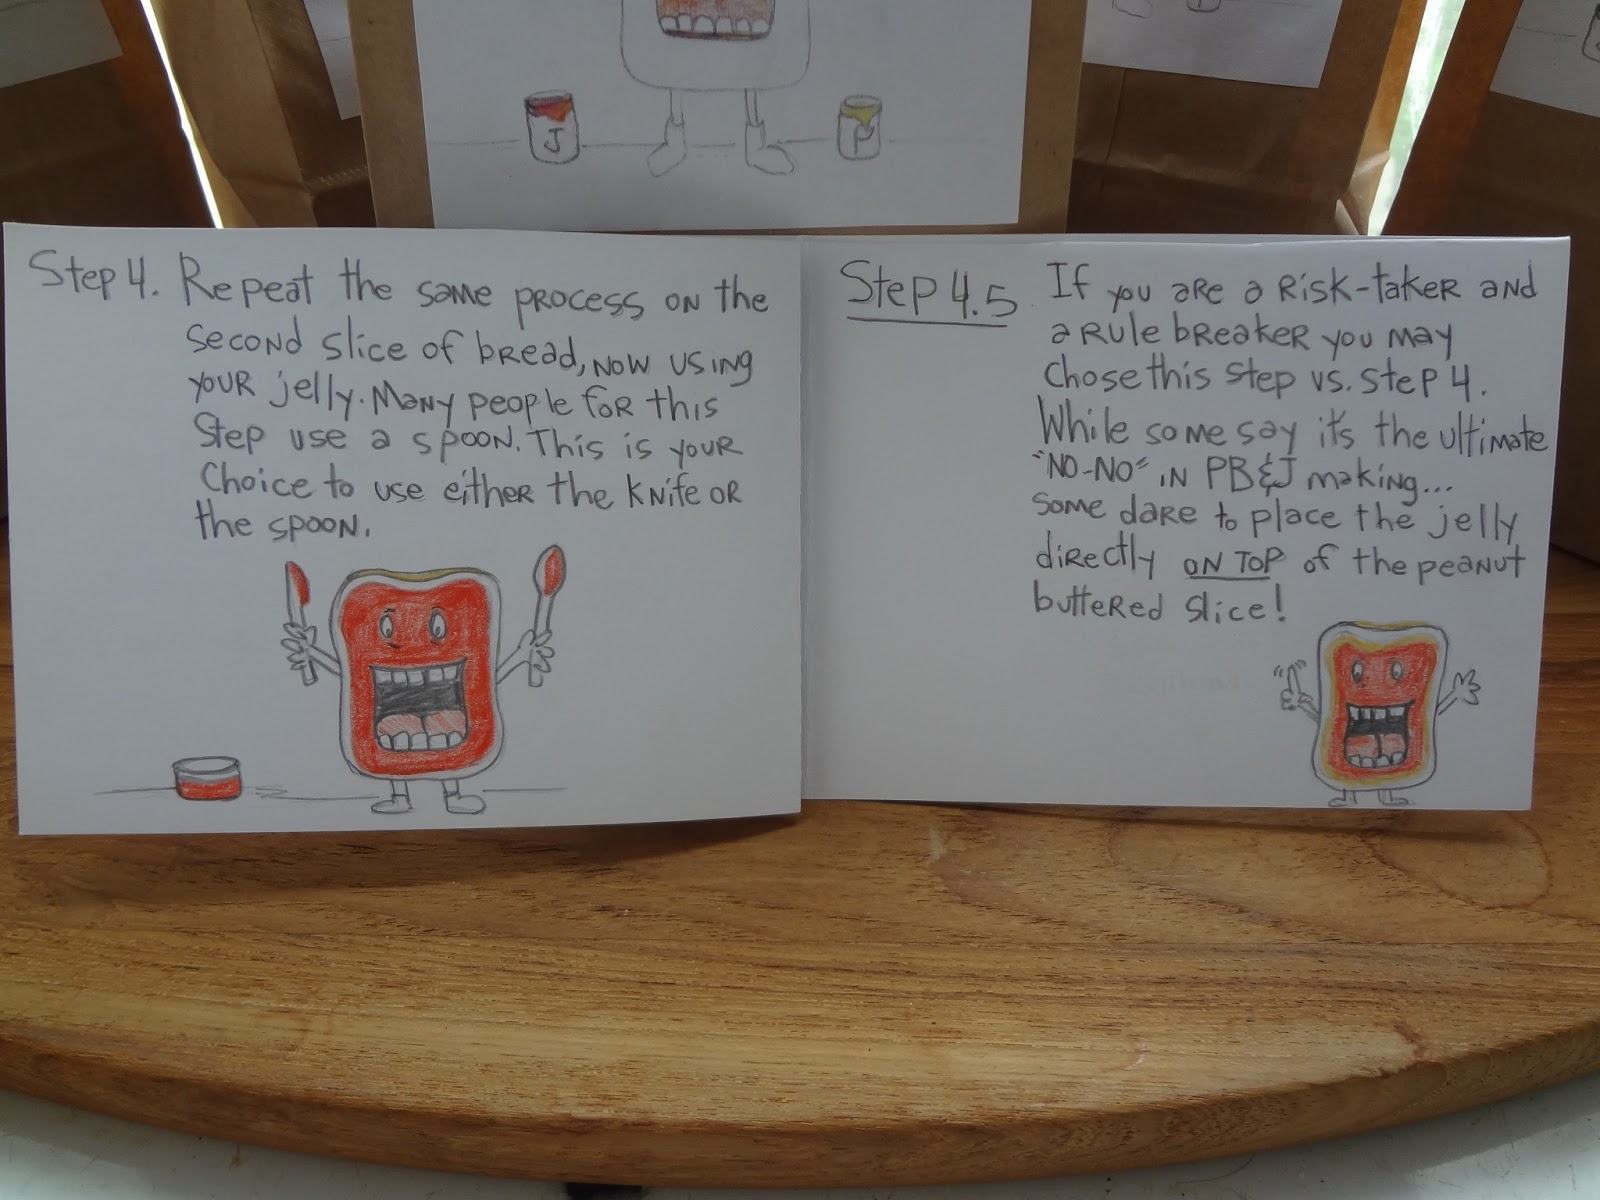 J
P
Step 4. Repeat the same process on the
second slice of bread, now using
your jelly. Many people for this
Step use a spoon. This is your
Choice to use either the knife or
the spoon.
Step 4.5 If you are a Risk-taker and
a rule breaker you may
Chose this step vs. Step 4.
While some say it's the ultimate
"NO-NO" in PB&J making...
some dare to place the jelly
directly ON TOP of the peanut
buttered slice!